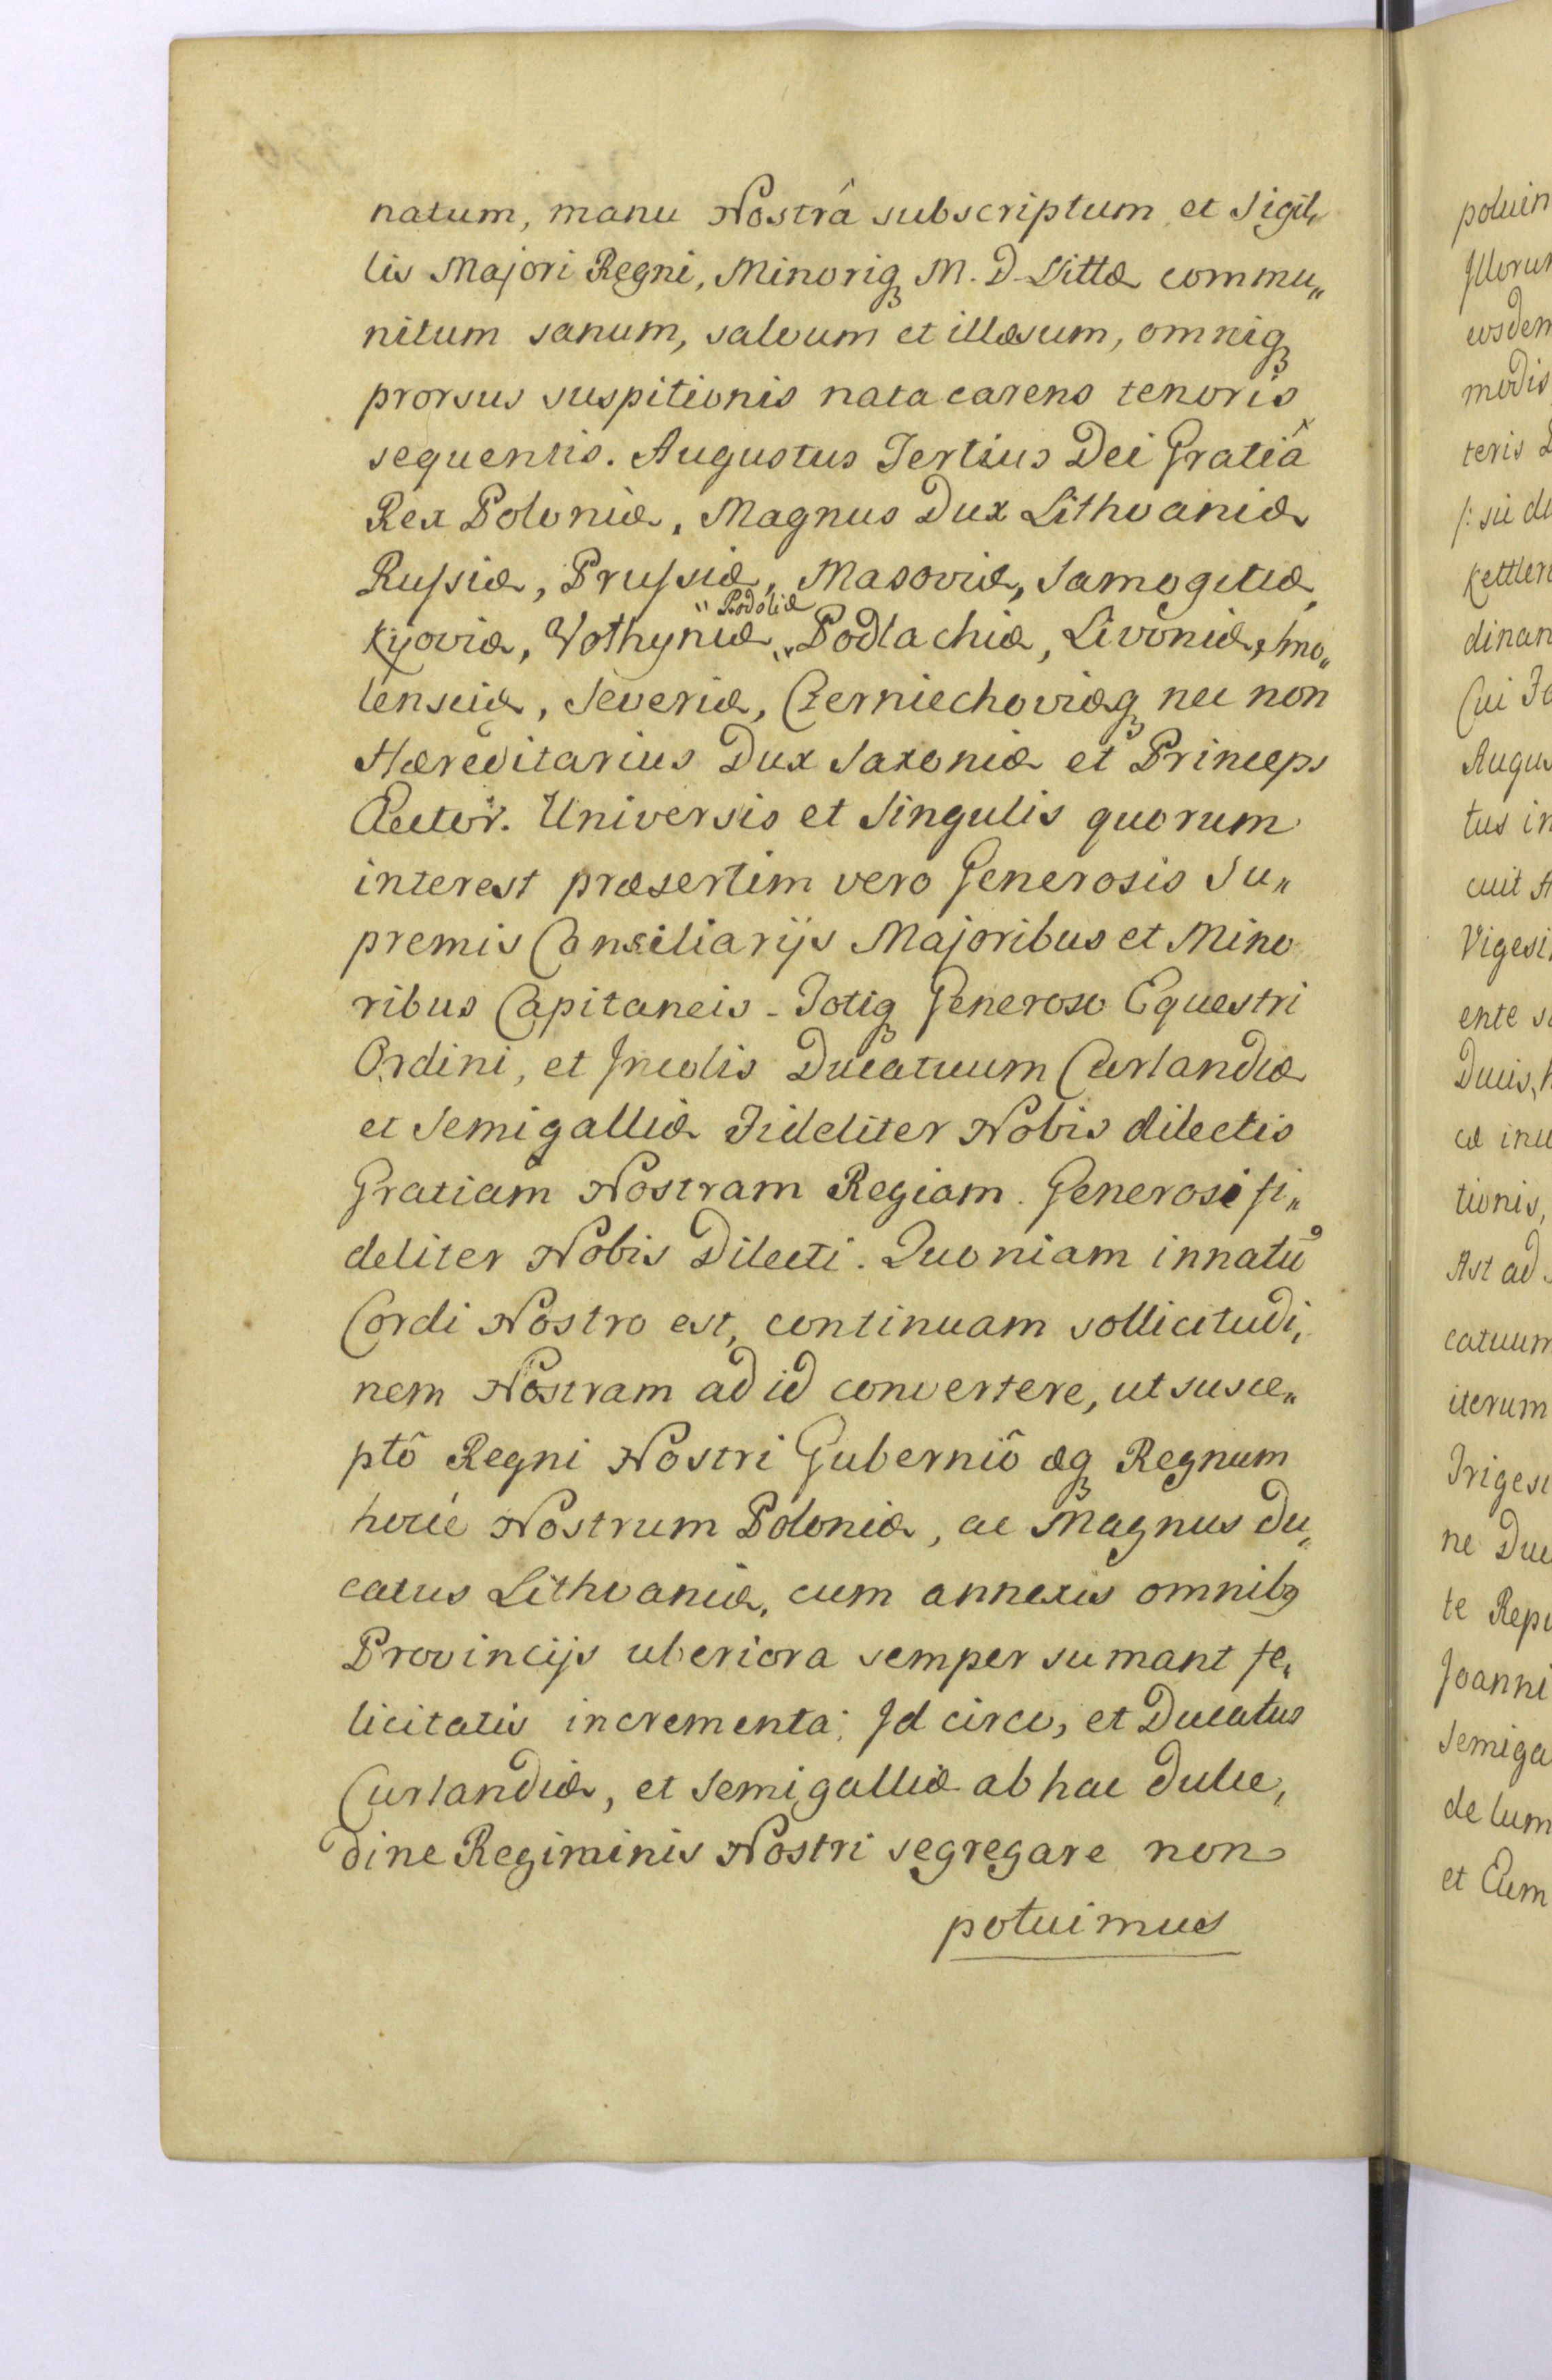 natum, manu Nostrâ subscriptum et Sigil„
lis Majori Regni, Minoriq; M. D. Littæ commu„
nitum sanum, salvum et illæsum, omniq;
prorsus suspitionis nata carens tenoris
sequentis. Augustus Tertius Dei Gratiâ
Rex Poloniæ, Magnus Dux Lithvaniæ
Russiæ, Prussiæ, Masoviæ, Samogitiæ,
Kyoviæ, Volhyniæ, „Podoliæ„ Podlachiæ, Livoniæ, Smo„
lensciæ, Severiæ, Czerniechoviæq; nec non
Hæreditarius Dux Saxoniæ et Princeps
Elector. Universis et Singulis quorum
interest præsertim vero Generosis Su„
premis Consiliarijs Majoribus et Mino
ribus Capitaneis Totiq; Generoso Equestri
Ordini, et Incolis Ducatuum Curlandiæ
et Semigalliæ Fideliter Nobis dilectis
Gratiam Nostram Regiam. Generosi fi„
deliter Nobis Dilecti. Quoniam innatũ
Cordi Nostro est, continuam sollicitudi„
nem Nostram ad id convertere, ut susce„
ptô Regni Nostri Guberniô æq; Regnum
hocce Nostrum Poloniæ, ac Magnus Du„
catus Lithvaniæ, cum annexis omnib9
Provincijs uberiora semper sumant fe„
licitatis incrementa; Id circo, et Ducatus
Curlandiæ, et Semigalliæ ab hac dulce„
dine Regiminis Nostri segregare non
potuimus